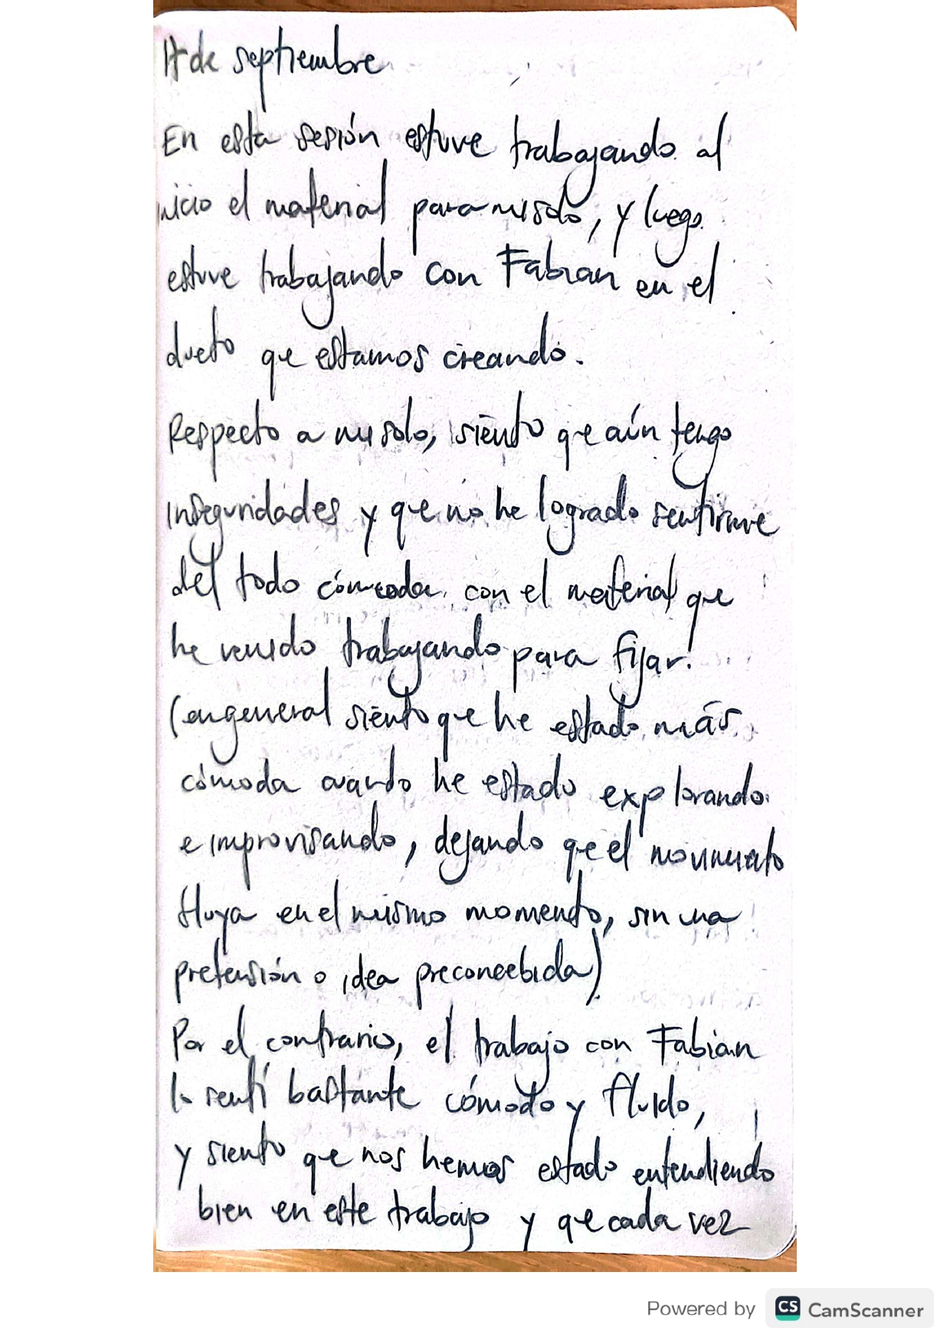 de septiembre
En esta sesión estuve trabajando al
inicio el material para mi solo, y luego
estuve trabajando con Fabian en el
dueto que estamos creando.
Respecto a mi solo, siento que aún tengo
inseguridades y que no he logrado sentirme
del todo cómoda con el material que
he venido trabajando para fijar.
(en general siento que he estado más
cómoda cuando he estado explorando
e improvisando, dejando que el movimiento
fluya en el mismo momento, sin una
pretensión o idea preconcebida)
Por el contrario, el trabajo con Fabian
lo sentí bastante cómodo y fluido,
y siento que nos hemos estado entendiendo
bien en este trabajo y que cada vez
Powered by CS CamScanner